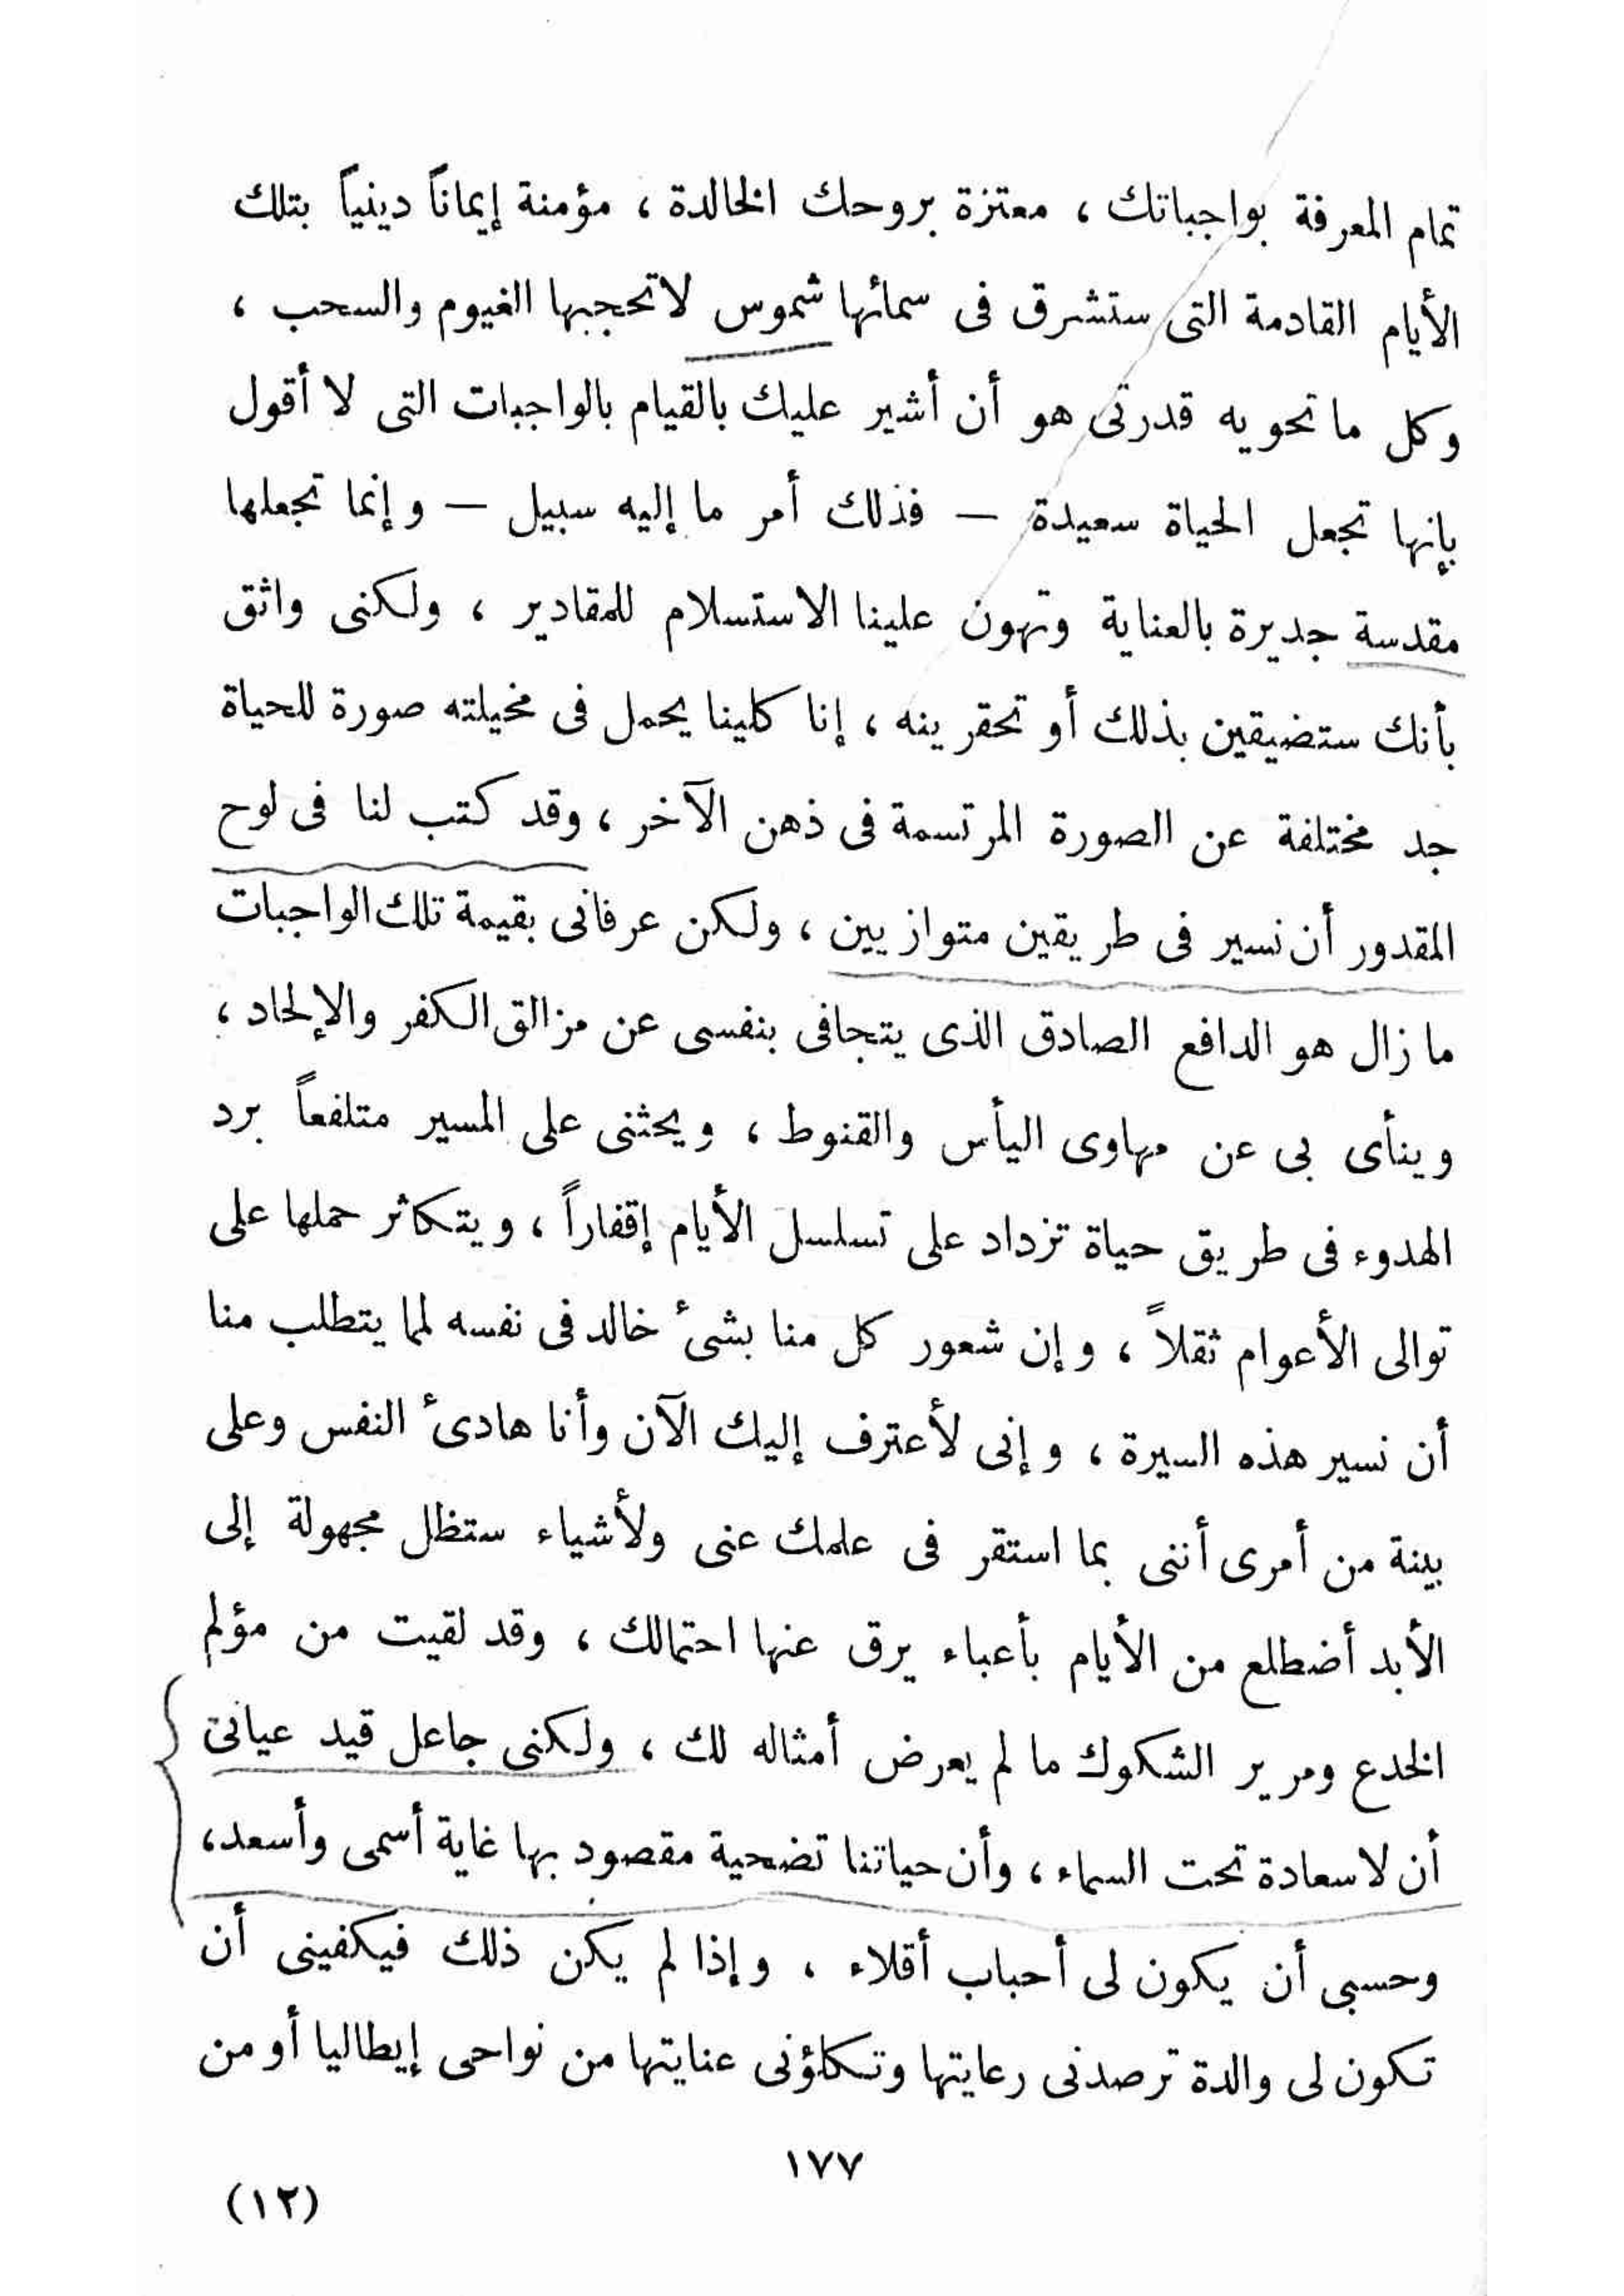 تمام المعرفة بواجباتك ، معتزة بروحك الخالدة ، مؤمنة إيماناً دينياً بتلك
الأيام القادمة التى ستشرق فى سمائها شموس لاتحجبها الغيوم والسحب ،
وكل ماتحويه قدرتى هو أن أشير عليك بالقيام بالواجبات التى لا أقول
بإنها تجعل الحياة سعيدة — فذلك أمر ما إليه سبيل — وإنما تجعلها
مقدسة جديرة بالعناية وتهون علينا الاستسلام للمقادير ، ولكنى واثق
بأنك ستضيقين بذلك أو تحقرينه ، إنا كلينا يحمل فى مخيلته صورة للحياة
جد مختلفة عن الصورة المرتسمة فى ذهن الآخر ، وقد كتب لنا فى لوح
المقدور أن نسير فى طريقين متوازيين ، ولكن عرفانى بقيمة تلك الواجبات
ما زال هو الدافع الصادق الذى يتجافى بنفسى عن مزالق الكفر والإلحاد ،
وينأى بى عن مهاوى اليأس والقنوط ، ويحثنى على المسير متلفعاً برد
الهدوء فى طريق حياة تزداد على تسلسل الأيام إقفاراً ، ويتكاثر حملها على
توالى الأعوام ثقلاً ، وإن شعور كل منا بشىء خالد فى نفسه لمما يتطلب منا
أن نسير هذه السيرة ، وإنى لأعترف إليك الآن وأنا هادىء النفس وعلى
بينة من أمرى أننى بما استقر فى علمك عنى ولأشياء ستظل مجهولة إلى
الأبد أضطلع من الأيام بأعباء يرق عنها احتمالك ، وقد لقيت من مؤلم
الخدع ومرير الشكوك ما لم يعرض أمثاله لك ، ولكنى جاعل قيد عيانى
أن لاسعادة تحت السماء ، وأن حياتنا تضحية مقصود بها غاية أسمى وأسعد،
وحسبى أن يكون لى أحباب أقلاء ، وإذا لم يكن ذلك فيكفينى أن
تكون لى والدة ترصدنى رعايتها وتكلؤنى عنايتها من نواحى إيطاليا أو من
١٧٧
(١٢)